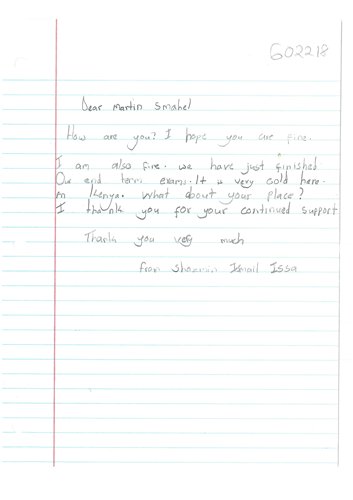 602218
Dear Martin Smahel
How are you? I hope you are fine.
I am also fine. we have just finished
Our end term exams. It is very cold here.
in Kenya. What about your place?
I thank you for your continued support
Thank you very much
from Ismail Issa